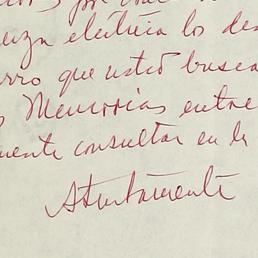 por
eléctrica los des
que usted busca
Memorias entre
consultar en la
Atentamente